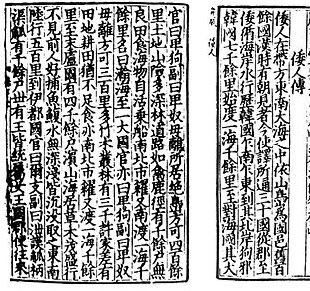 倭人傳
倭人在帶方東南大海之中依山㠀爲國邑舊百
餘國漢時有朝見者今使譯所通三十國從郡至
倭循海岸水行歷韓國乍南乍東到其北岸狗邪
韓國七千餘里始度一海千餘里至對海國其大
官曰卑狗副曰卑奴母離所居絶㠀方可四百餘
里土地山險多深林道路如禽鹿徑有千餘戶無
良田食海物自活乗船南北市糴又南渡一海千
餘里名曰瀚海至一大國官亦曰卑狗副曰卑奴
母離方可三百里多竹木叢林有三千許家差有
田地耕田猶不足食亦南北市糴又渡一海千餘
里至末盧國有四千餘戶濵山海居草木茂盛行
不見前人好捕魚鰒水無深淺皆沈没取之東南
陸行五百里到伊都國官曰爾支副曰泄謨觚柄
渠觚有千餘戶世有王皆統屬女王國郡使往來